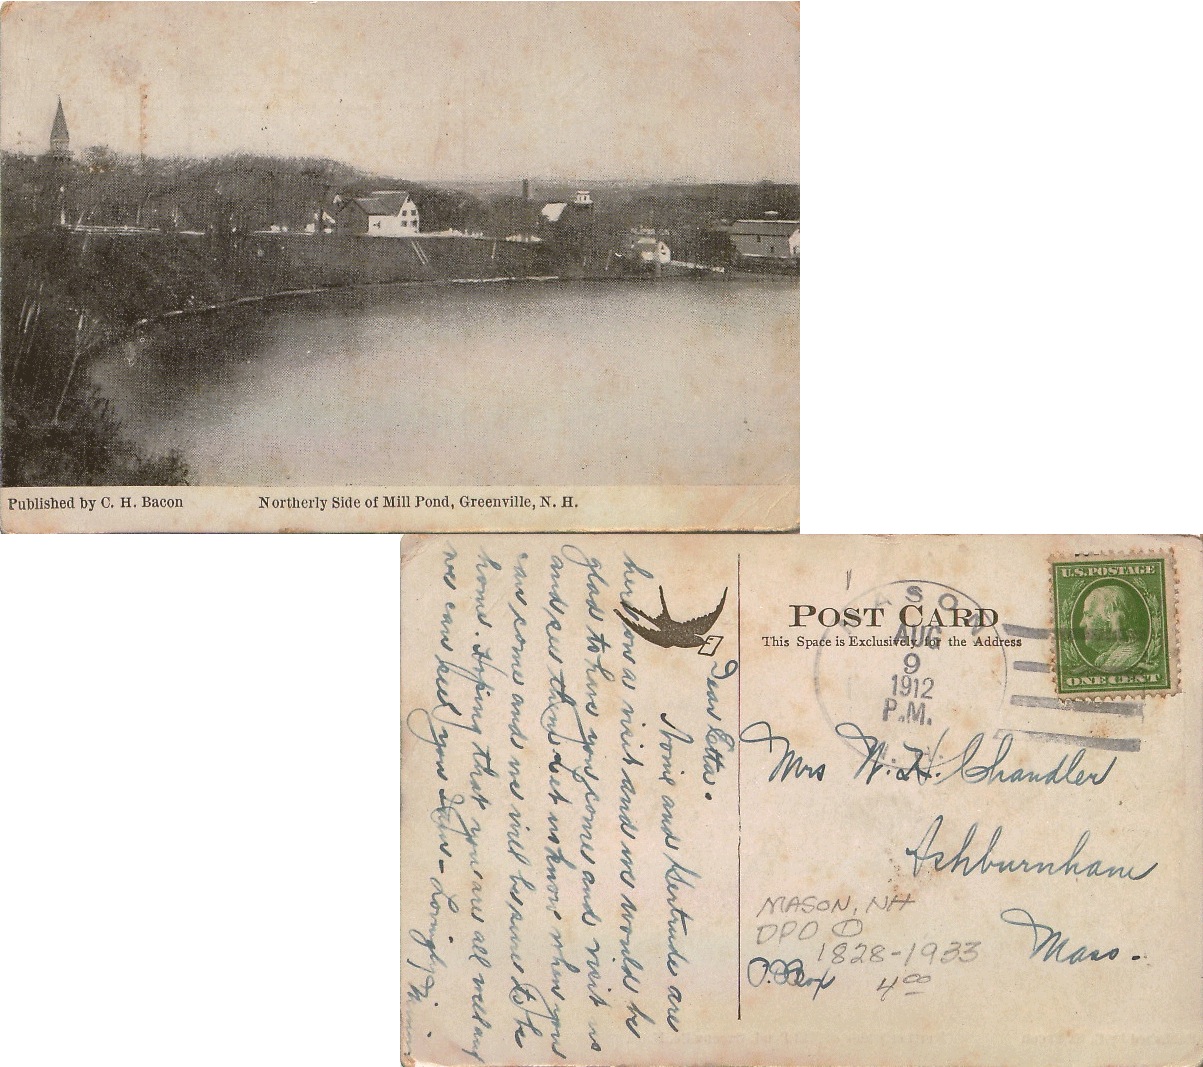 Published by C. H. Bacon Northerly Side of Mill Pond, Greenville, N. H.
Dear Etta.
and Gertrude are
here on a visit and we would be
glad to have you come and visit us
and see them. Let us know when you
can come and we will be sure to be
home. Hoping that you are all well and
we can see you - Lovingly
POST CARD
This Space is Exclusively for the Address
MASON
AUG
9
1912
P.M.
N.H.
U.S. POSTAGE
ONE CENT
Mrs W. H. Chandler
Ashburnham
Mass.
MASON, NH
DPO
1828-1933
P.O. Box
4.00